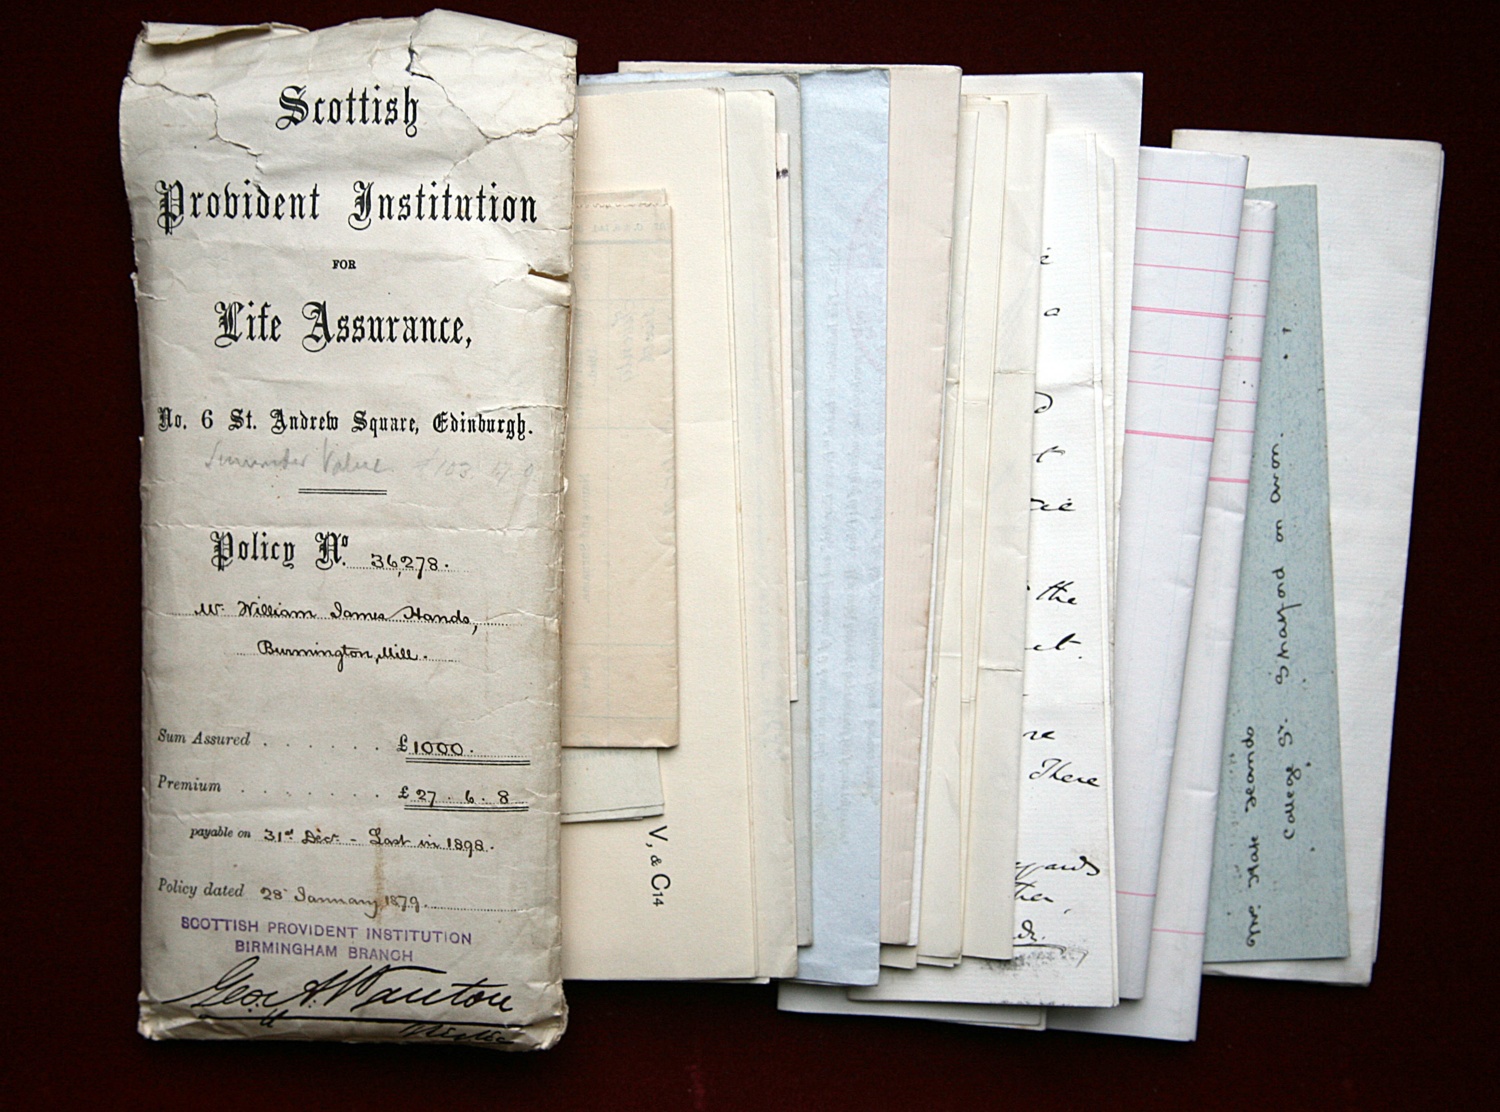 Scottish
Provident Institution
FOR
Life Assurance,
No. 6 St. Andrew Square, Edinburgh.
Surrender Value £103
Policy No. 36,278.
Mr. William James Hands,
Burmington Mill.
Sum Assured . . . . . . £1000.
Premium . . . . . . £27.6.8
payable on 31st Decr. - Last in 1898.
Policy dated 28 January 1879.
SCOTTISH PROVIDENT INSTITUTION
BIRMINGHAM BRANCH
Geo. A.
V, & C14
a
the
There
Mr. Hands
College St. on Avon.